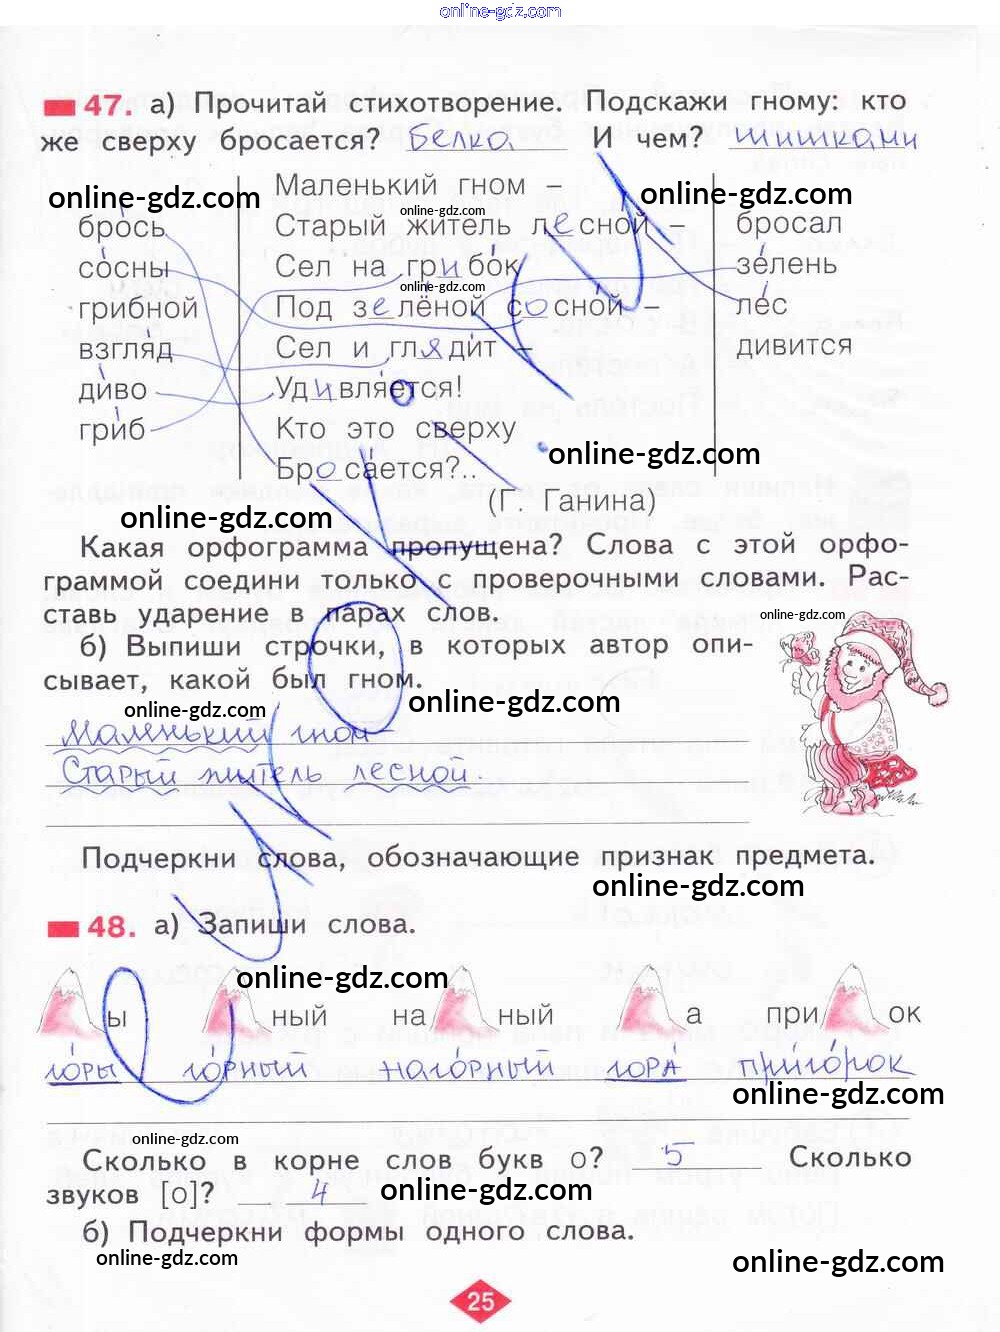 online-gdz.com
47. а) Прочитай стихотворение. Подскажи гному: кто
же сверху бросается? белка И чем? шишками
online-gdz.com
online-gdz.com
Маленький гном –
online-gdz.com
брось
Старый житель лесной –
бросал
со́сны
Сел на грибо́к
зе́лень
online-gdz.com
грибной
Под зелёной сосно́й –
ле́с
взгля́д
Сел и гляди́т –
дивится
ди́во
Удивля́ется!
гри́б
Кто это сверху
Броса́ется?..
online-gdz.com
(Г. Ганина)
online-gdz.com
Какая орфограмма пропущена? Слова с этой орфо-
граммой соедини только с проверочными словами. Рас-
ставь ударение в парах слов.
online-gdz.com
б) Выпиши строчки, в которых автор опи-
сывает, какой был гном.
online-gdz.com
online-gdz.com
Маленький гном –
Старый житель лесной.
Подчеркни слова, обозначающие признак предмета.
online-gdz.com
48. а) Запиши слова.
online-gdz.com
ы ный на ный а при ок
го́ры го́рный наго́рный гора́ приго́рок
online-gdz.com
online-gdz.com
Сколько в корне слов букв о? 5 Сколько
звуков [о]? 4
online-gdz.com
б) Подчеркни формы одного слова.
online-gdz.com
online-gdz.com
25